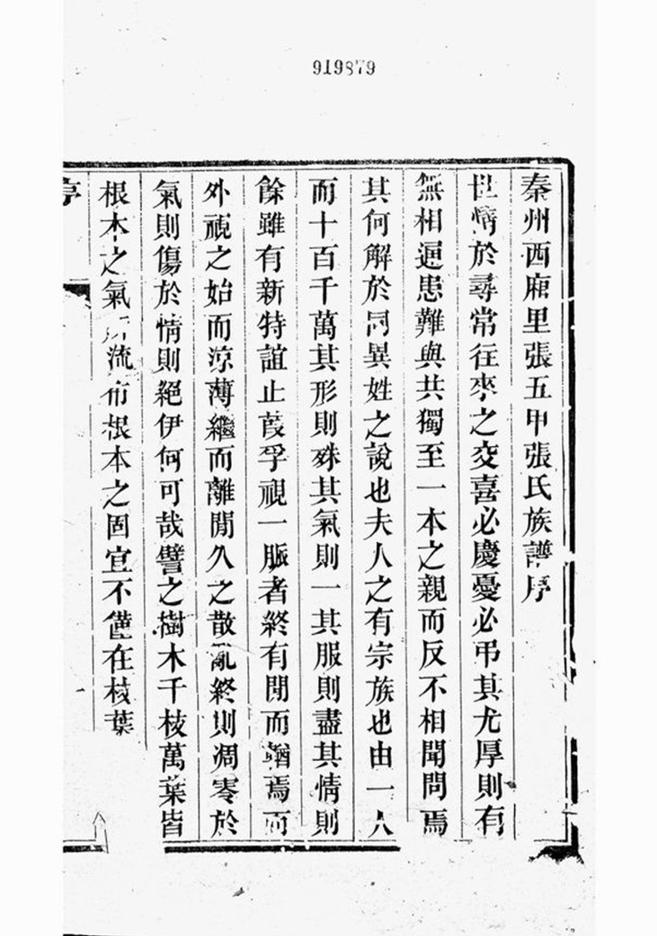 919879
秦州西廂里張五甲張氏族譜序
世情於尋常往來之交喜必慶憂必弔其尤厚則有
無相通患難與共獨至一本之親而反不相聞問焉
其何解於同異姓之說也夫人之有宗族也由一人
而十百千萬其形則殊其氣則一其服則盡其情則
餘雖有新特誼止葭孚視一脈者終有閒而論焉而
外視之始而涼薄繼而離閒久之散亂終則凋零於
氣則傷於情則絕伊何可哉譬之樹木千枝萬葉皆
根本之氣所流布根本之固宜不僅在枝葉
序